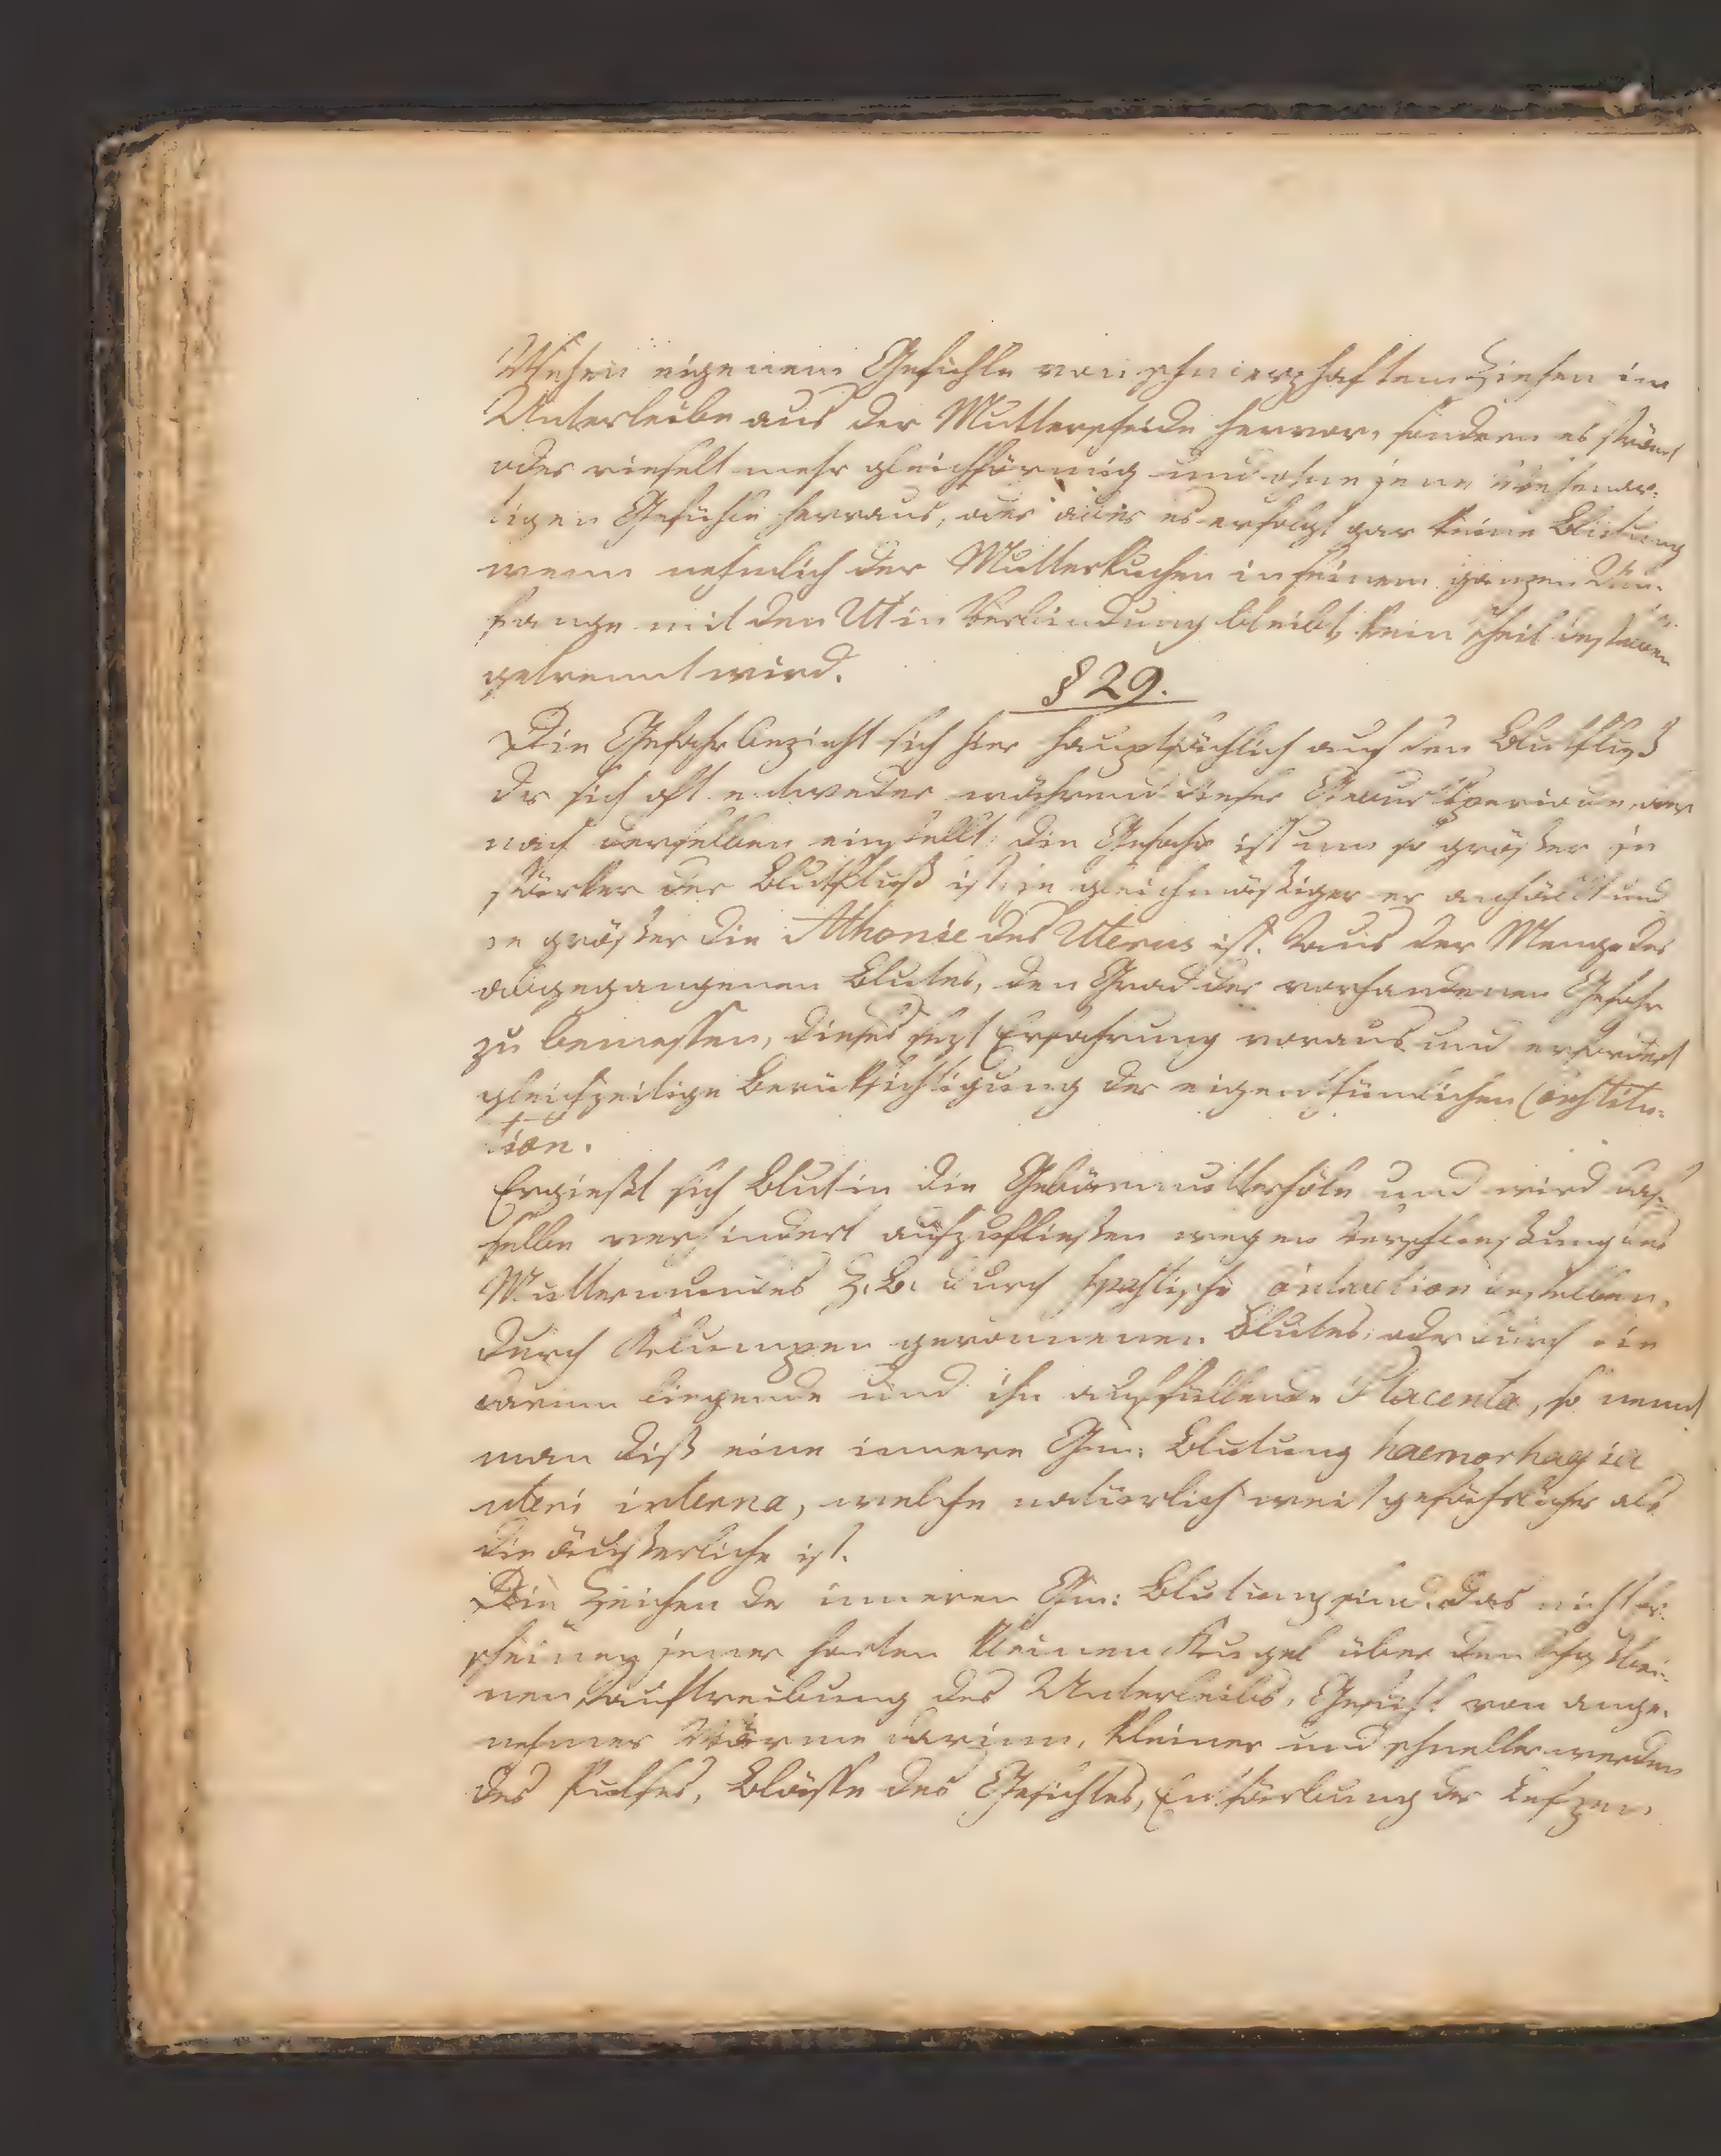 Wehen eigenem Gefühle von schmerzhaftem Ziehen im
Unterleibe aus der Mutterscheide hervor, sondern es strömt
oder rieselt mehr gleichförmig und ohne jene wehenar-
tigen Gefühle herraus, oder aber es erfolgt gar keine Blutung
wenn nehmlich der Mutterkuchen in seinem ganzen Um-
fange mit den Ut in Verbindung bleibt, kein Theil desselben
getrennt wird.
§ 29.
Die Gefahr bezieht sich hier hauptsächlich auf den Blutfluß
der sich oft entweder während dieser Geburtsperiode, oder
nach derselben einstellt; die Gefahr ist um so größer je
stärker der Blutfluß ist, je gleichmäßiger er anhällt und
je größer die Athonie des Uterus ist. Aus der Menge des
abgegangenen Blutes, den Grad der vorhandenen Gefahr
zu bemessen, dieses sezt Erfahrung voraus und erfordert
gleichzeitige Berüksichtigung der eigenthümlichen Constitu-
tion.
Ergießt sich Blut in die Gebärmutterhöle und wird das-
selbe verhindert auszufliessen wegen Verschliessung des
Muttermundes z. B. durch spastische Contraction desselben,
durch Klumpen geronnenen Blutes, oder durch die
darinn liegende und ihn ausfüllende Placenta, so nennt
man diß eine innere Gm: Blutung haemorhagia
uteri interna, welche natürlich weit gefährlicher als
die äusserliche ist.
Die Zeichen der inneren Gm: Blutung sind, das nicht er-
scheinen jener harten kleinen Kugel über den Schosbei-
nen, Auftreibung des Unterleibs, Gefühl von ange-
nehmer Wärme darinn, kleiner und schneller werden
des Pulses, Blässe des Gesichtes, Entfärbung der Lefzen,